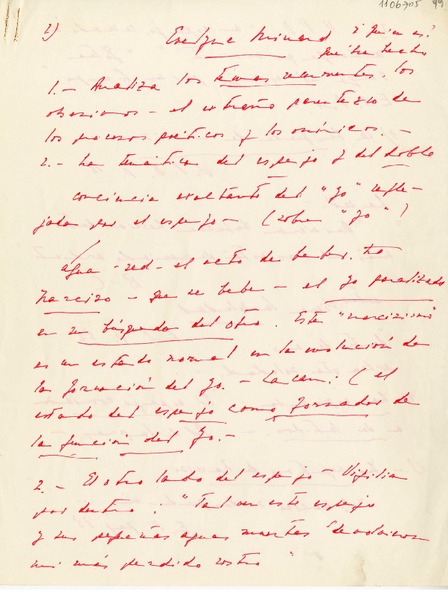 1106705 99
2) Evelyne Minard ¿quién es?
qué ha hecho
1.- Analiza los temas recurrentes, los
obsesivos - el extraño parentesco de
los procesos poéticos y los oníricos. -
2.- La temática del espejo y del doble
conciencia exaltante del "yo" refle-
jada por el espejo - (sobre "yo")
agua - red - el acto de beber.
Narciso - que se bebe - el yo paralizado
en su búsqueda del otro. Este "narcisismo"
es un estado normal en la evolución de
la formación del yo. - Lacan: (el
estado del espejo como formador de
la función del yo. -
2.- El otro lado del espejo - Vigilia
por dentro. "Tal vez este espejo
y sus pequeñas aguas muertas
mi más perdido rostro"